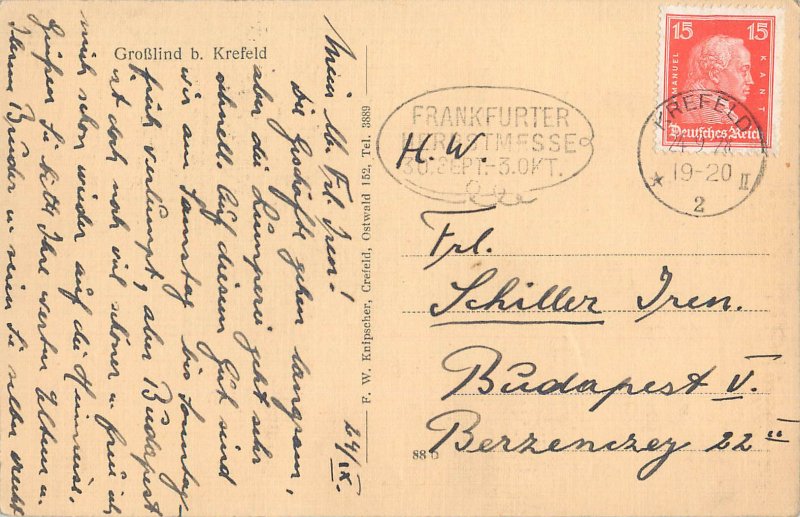 Großlind b. Krefeld
24/IX.
Mein lb. Frl. Iren!
Die Geschäfte gehen langsam,
aber die Lumperei geht sehr
schnell. Auf diesem Gut sind
wir am Samstag bis Sonntag-
früh verlumpt, aber Budapest
ist doch noch viel schöner u. freu ich
mich schon wieder auf die Heimreise.
Grüßen Sie bitte Ihre werten Eltern u.
Ihren Bruder u. seien Sie selbst recht
F. W. Knipscher, Crefeld, Ostwald 152, Tel. 3889
88
FRANKFURTER
HERBSTMESSE
30.SEPT.-3.OKT.
H. W.
15 15
IMMANUEL KANT
Deutsches Reich
KREFELD
24.9.28
19-20 II
* 2
Frl.
Schiller Iren.
Budapest V.
Berzenczey 22